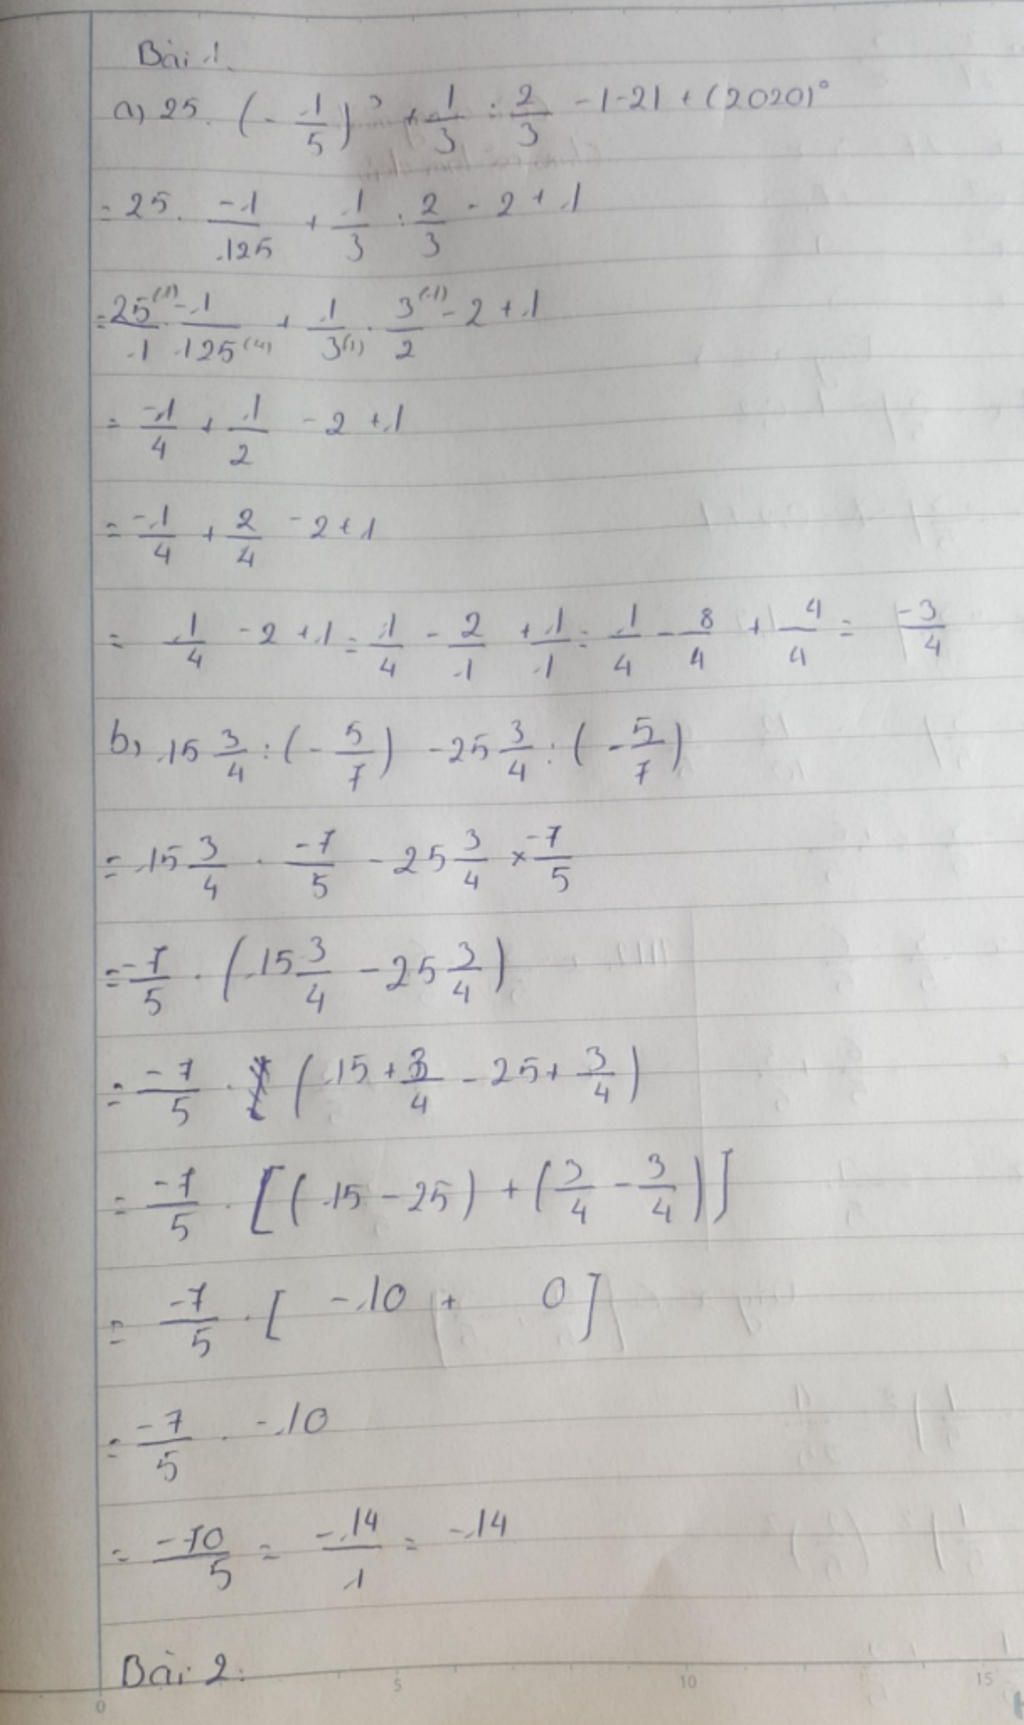 Bài 1.
a) 25 . (- 1/5)³ + 1/3 : 2/3 - |-2| + (2020)⁰
= 25 . -1/125 + 1/3 : 2/3 - 2 + 1
= 25⁽¹⁾/1 . -1/125⁽⁴⁾ + 1/3⁽¹⁾ . 3⁽¹⁾/2 - 2 + 1
= -1/4 + 1/2 - 2 + 1
= -1/4 + 2/4 - 2 + 1
= 1/4 - 2 + 1 = 1/4 - 2/1 + 1/1 = 1/4 - 8/4 + 4/4 = -3/4
b, 15 3/4 : (- 5/7) - 25 3/4 : (- 5/7)
= 15 3/4 . -7/5 - 25 3/4 × -7/5
= -7/5 . (15 3/4 - 25 3/4)
= -7/5 . (15 + 3/4 - 25 + 3/4)
= -7/5 . [(15 - 25) + (3/4 - 3/4)]
= -7/5 . [ -10 + 0 ]
= -7/5 . -10
= -70/5 = -14/1 = -14
Bài 2:
0 5 10 15